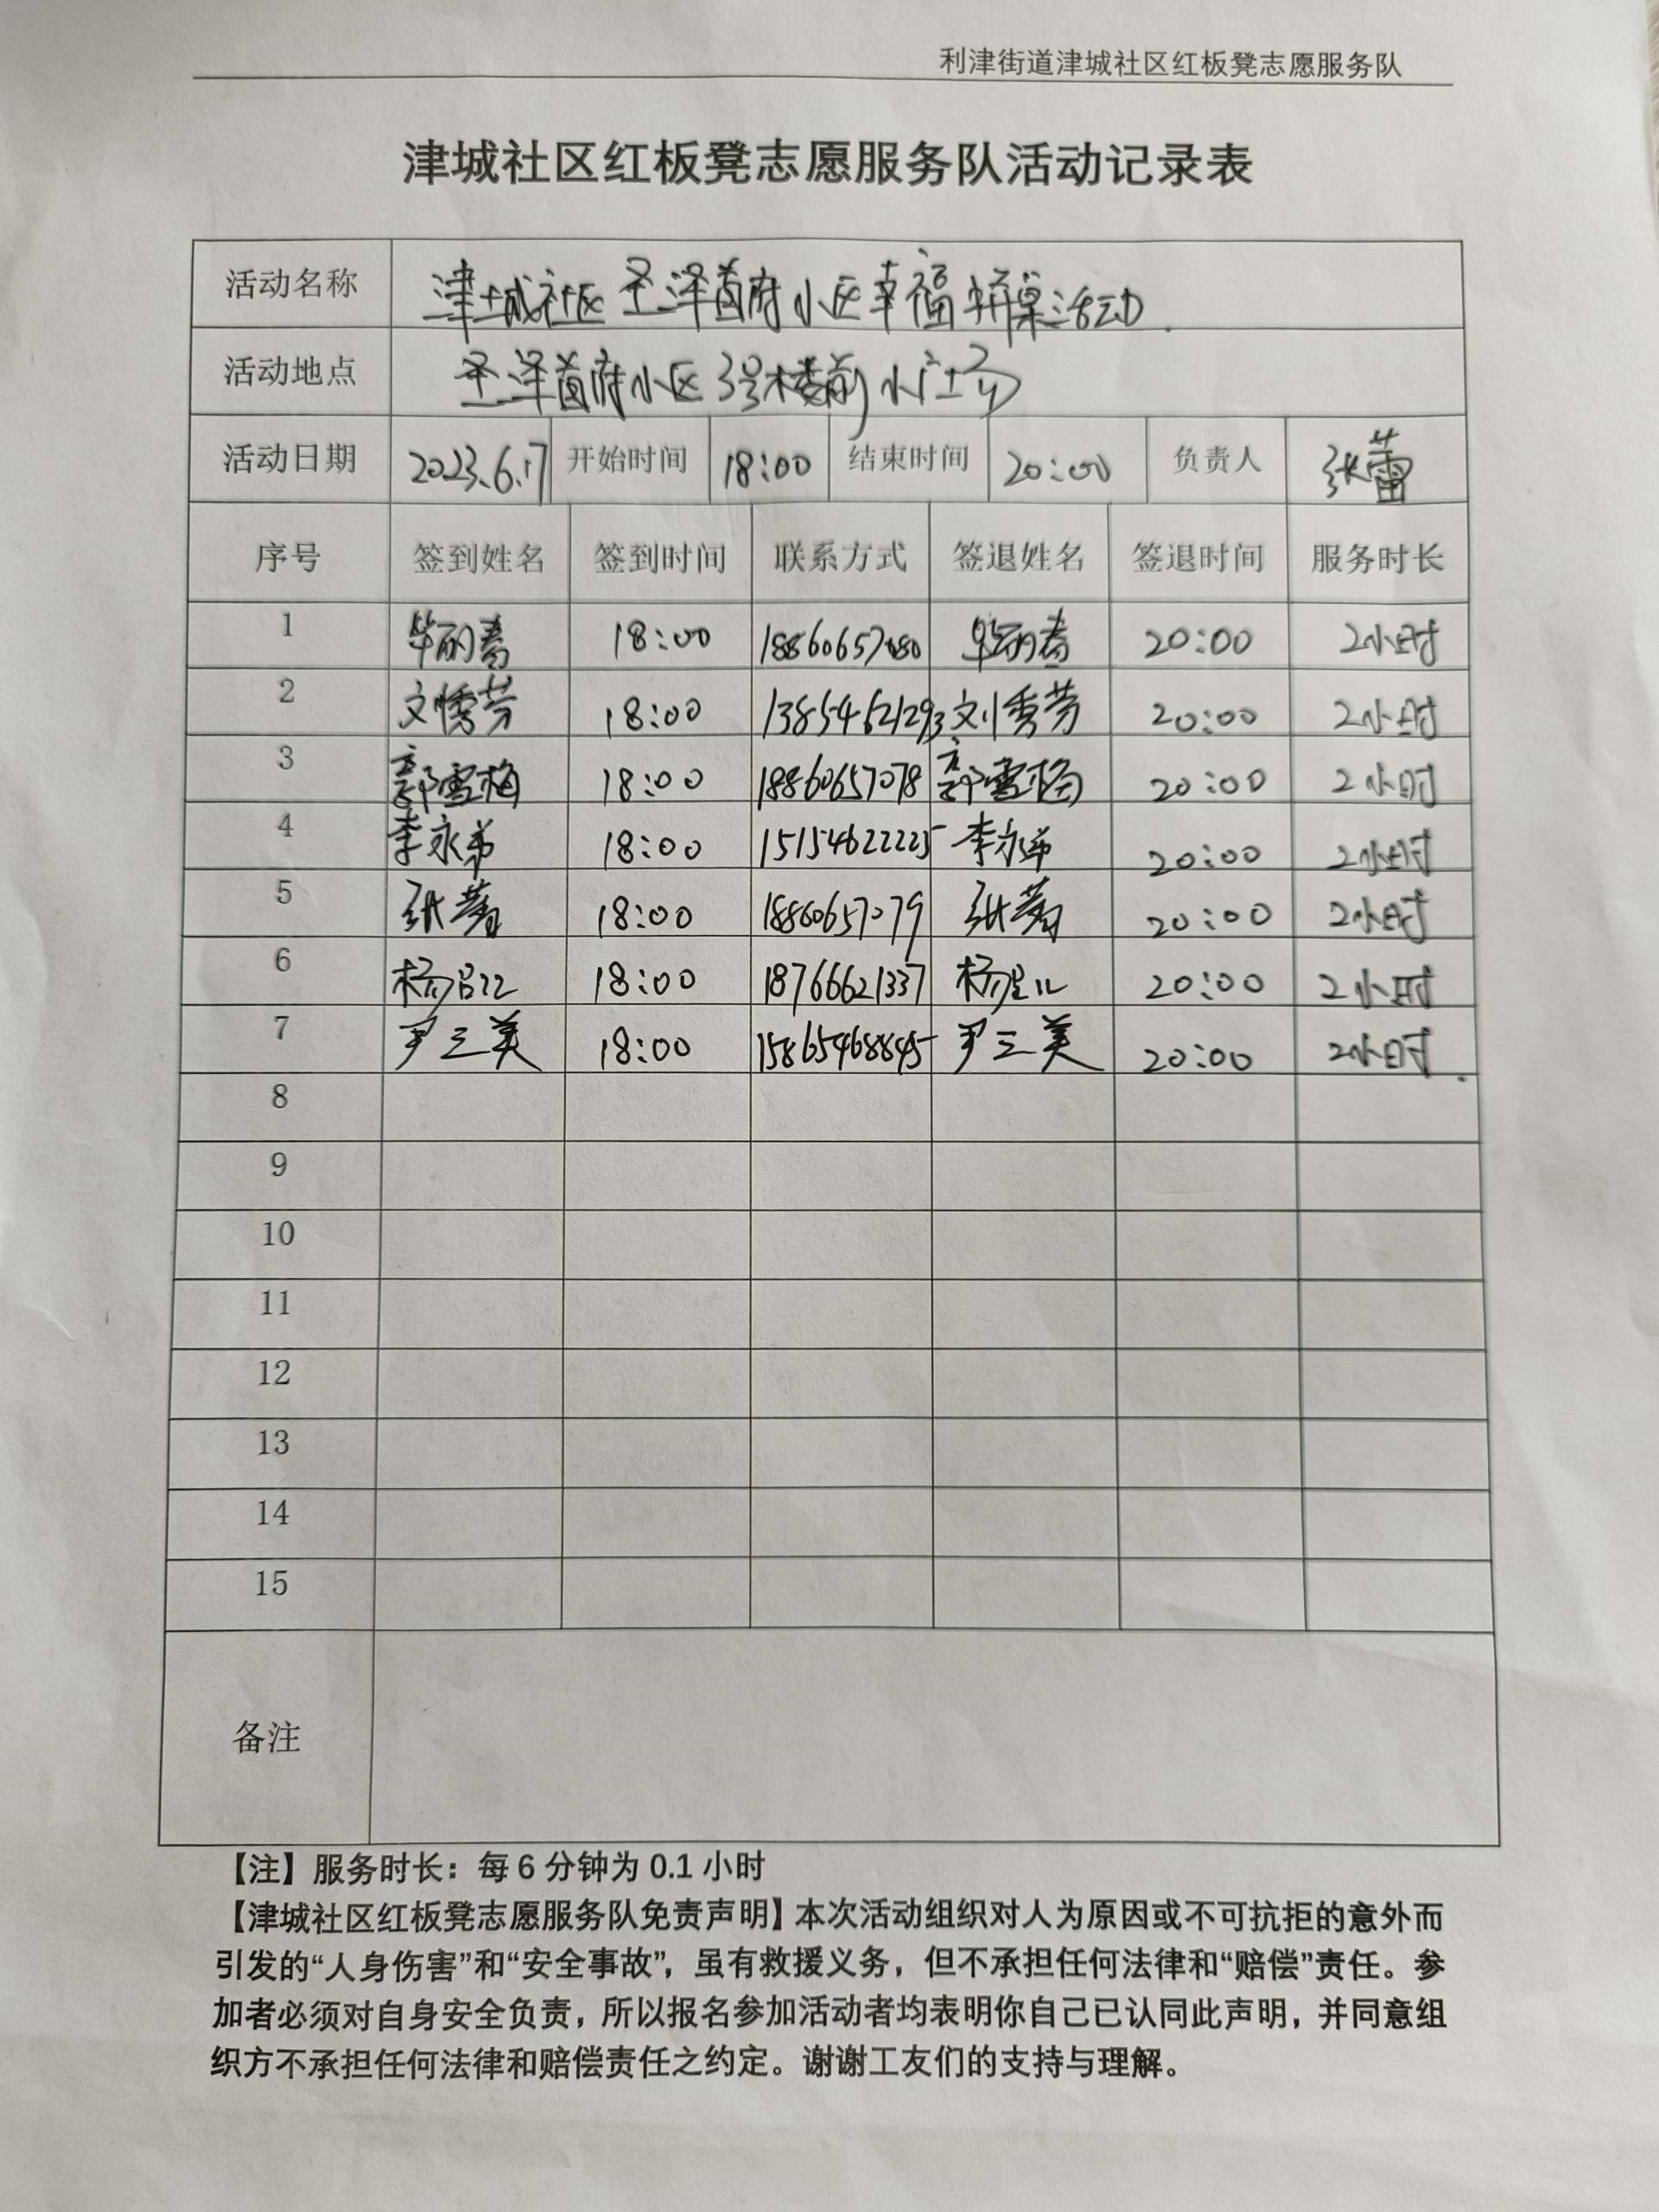 利津街道津城社区红板凳志愿服务队
津城社区红板凳志愿服务队活动记录表
活动名称 津城社区圣泽首府小区幸福拼桌活动
活动地点 圣泽首府小区3号楼前小广场
活动日期 2023.6.17 开始时间 18:00 结束时间 20:00 负责人 张蕾
序号 签到姓名 签到时间 联系方式 签退姓名 签退时间 服务时长
1 毕丽春 18:00 18860657080 毕丽春 20:00 2小时
2 刘秀芳 18:00 13854621293 刘秀芳 20:00 2小时
3 郭雪梅 18:00 18860657078 郭雪梅 20:00 2小时
4 李永弟 18:00 15154622225 李永弟 20:00 2小时
5 张 18:00 18860657079 张 20:00 2小时
6 杨 18:00 18766621337 杨 20:00 2小时
7 尹三美 18:00 15865468845 尹三美 20:00 2小时
8
9
10
11
12
13
14
15
备注
【注】服务时长：每 6 分钟为 0.1 小时
【津城社区红板凳志愿服务队免责声明】本次活动组织对人为原因或不可抗拒的意外而
引发的“人身伤害”和“安全事故”，虽有救援义务，但不承担任何法律和“赔偿”责任。参
加者必须对自身安全负责，所以报名参加活动者均表明你自己已认同此声明，并同意组
织方不承担任何法律和赔偿责任之约定。谢谢工友们的支持与理解。